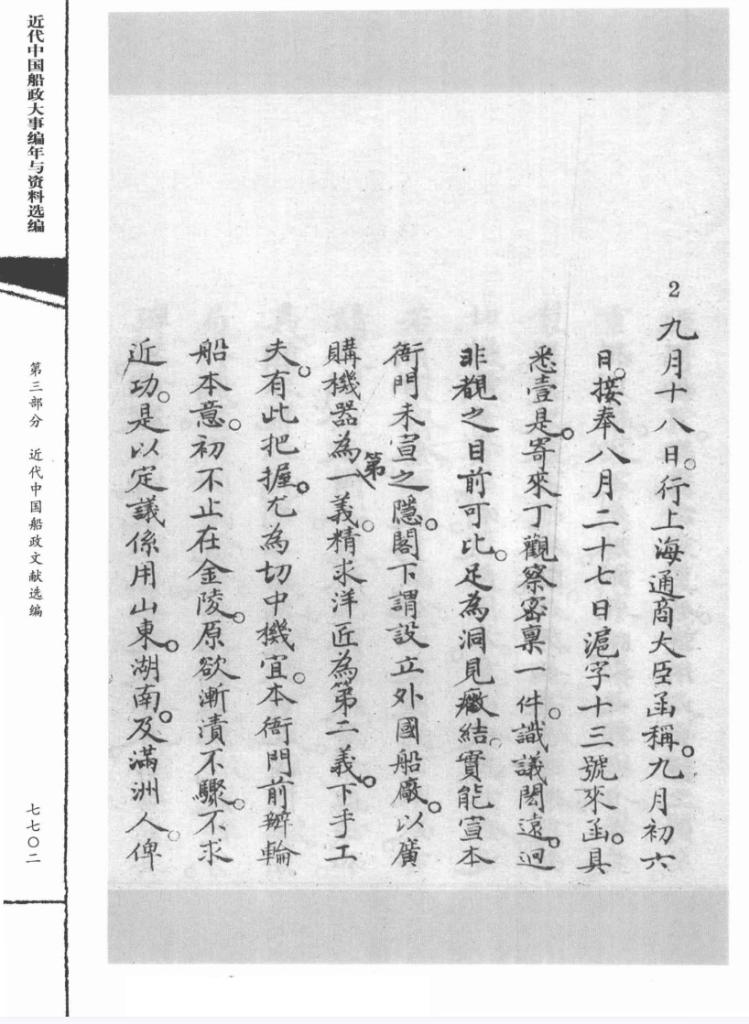 近代中国船政大事编年与资料选编
第三部分 近代中国船政文献选编
七七〇二
2
九月十八日。行上海通商大臣函稱。九月初六
日。接奉八月二十七日滬字十三號來函。具
悉壹是。寄來丁觀察密稟一件。識議閎遠。迥
非覩之目前可比。足為洞見癥結。實能宣本
衙門未宣之隱。閣下謂設立外國船廠。以廣
購機器為第一義。精求洋匠為第二義。下手工
夫。有此把握。尤為切中機宜。本衙門前辦輪
船本意。初不止在金陵。原欲漸漬不驟。不求
近功。是以定議係用山東。湖南。及滿洲人。俾